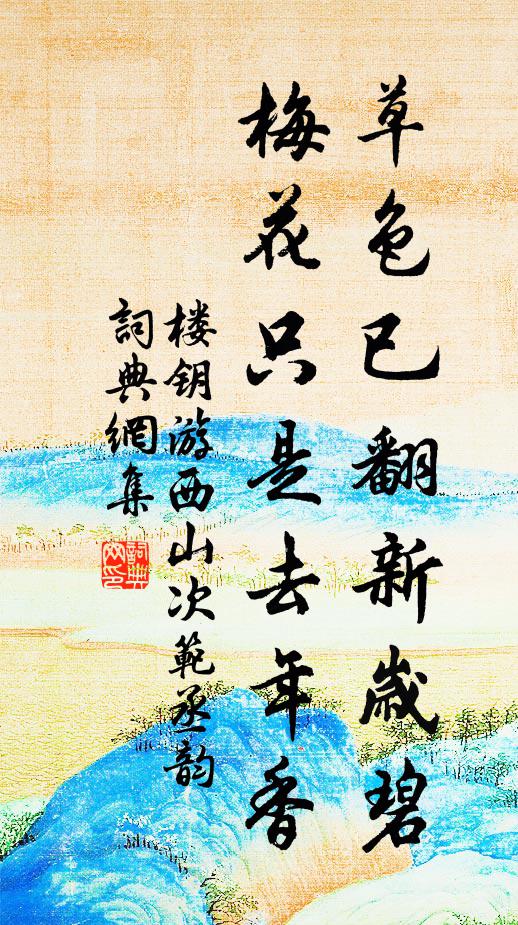 草色已翻新歲碧
梅花只是去年香
楼钥游西山次範丞韵
詞典網集
詞典
网印